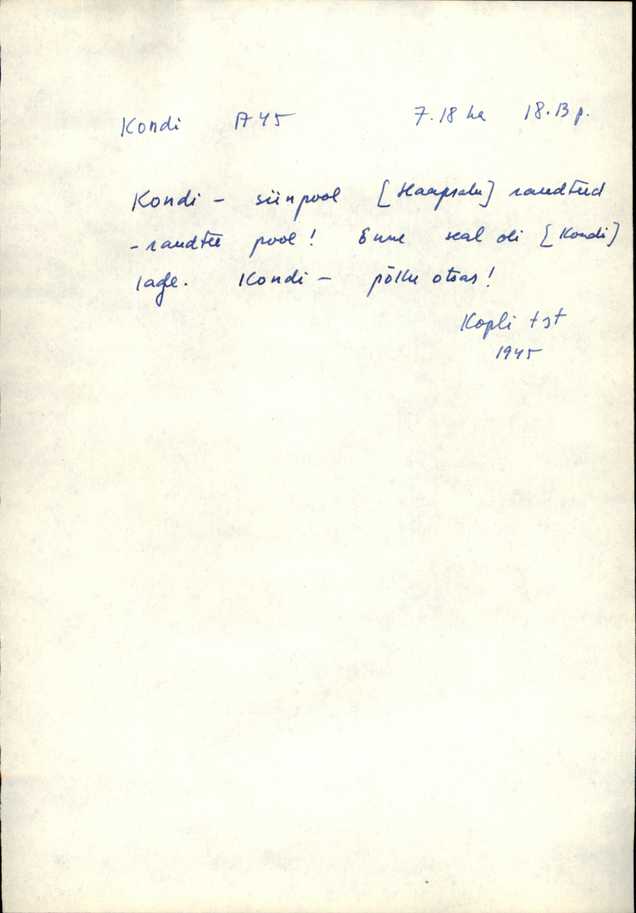 Kondi A45 7.18 ha 18.13 p.
Kondi - siinpool [Haapsalu] raudteed
- raudtee pool! Enne seal oli [Kondi]
lage. Kondi - põllu otsas!
Kopli tst
1945